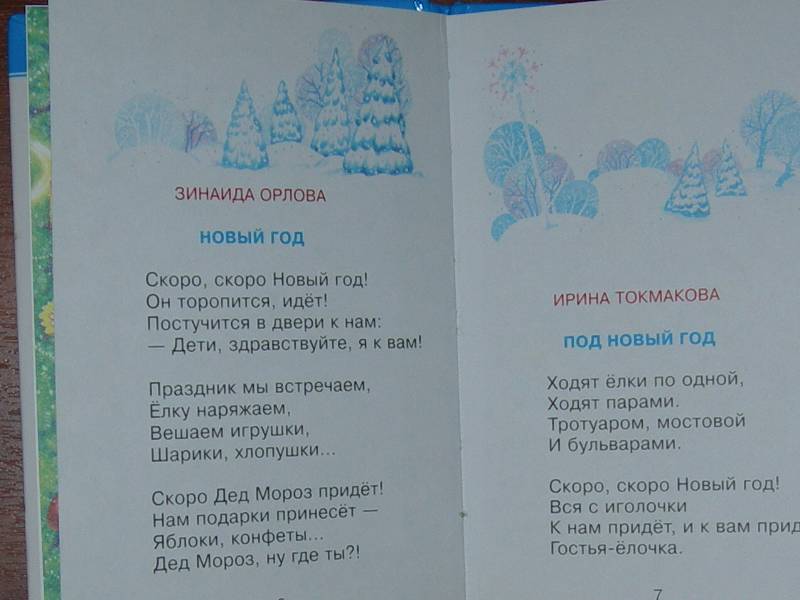 ЗИНАИДА ОРЛОВА
НОВЫЙ ГОД
Скоро, скоро Новый год!
Он торопится, идёт!
Постучится в двери к нам:
— Дети, здравствуйте, я к вам!
Праздник мы встречаем,
Ёлку наряжаем,
Вешаем игрушки,
Шарики, хлопушки...
Скоро Дед Мороз придёт!
Нам подарки принесёт —
Яблоки, конфеты...
Дед Мороз, ну где ты?!
ИРИНА ТОКМАКОВА
ПОД НОВЫЙ ГОД
Ходят ёлки по одной,
Ходят парами.
Тротуаром, мостовой
И бульварами.
Скоро, скоро Новый год!
Вся с иголочки
К нам придёт, и к вам прид
Гостья-ёлочка.
7